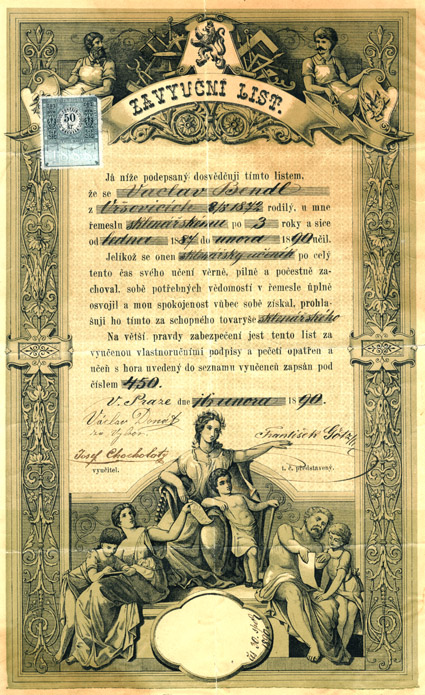 ZAVYUČNÍ LIST
50
Kr.
Já níže podepsaný dosvědčuji tímto listem,
že se Vaclav Bendl
z Vršovicích 8/5 1872 rodilý, u mne
řemeslu sklenářskému po 3 roky a sice
od ledna 1887 do února 1890 učil.
Jelikož se onen sklenářský učeník po celý
tento čas svého učení věrně, pilně a počestně za-
choval, sobě potřebných vědomostí v řemesle úplně
osvojil a mou spokojenost vůbec sobě získal, prohla-
šuji ho tímto za schopného tovaryše sklenářského
Na větší pravdy zabezpečení jest tento list za
vyučenou vlastnoručními podpisy a pečetí opatřen a
učeň s hora uvedený do seznamu vyučenců zapsán pod
číslem 450.
V Praze dne 16 února 1890.
Václav Donát
za výbor
František
Josef Chocholatý
vyučitel.
t. č. představený.